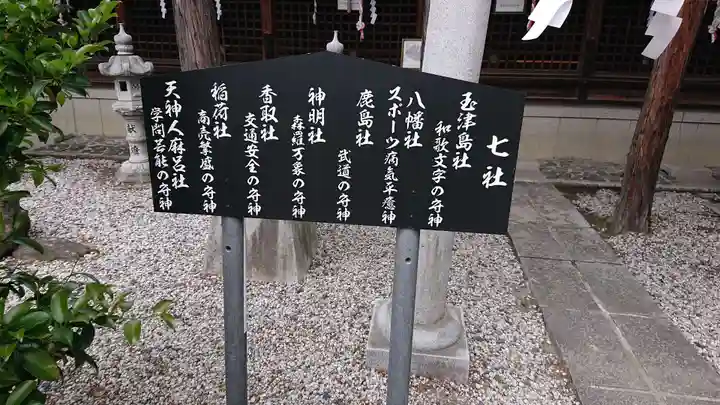 七社
玉津島社
和歌文学の守神
八幡社
スポーツ病気平癒神
鹿島社
武道の守神
神明社
森羅万象の守神
香取社
交通安全の守神
稲荷社
商売繁盛の守神
天神人麻呂社
学問芸能の守神